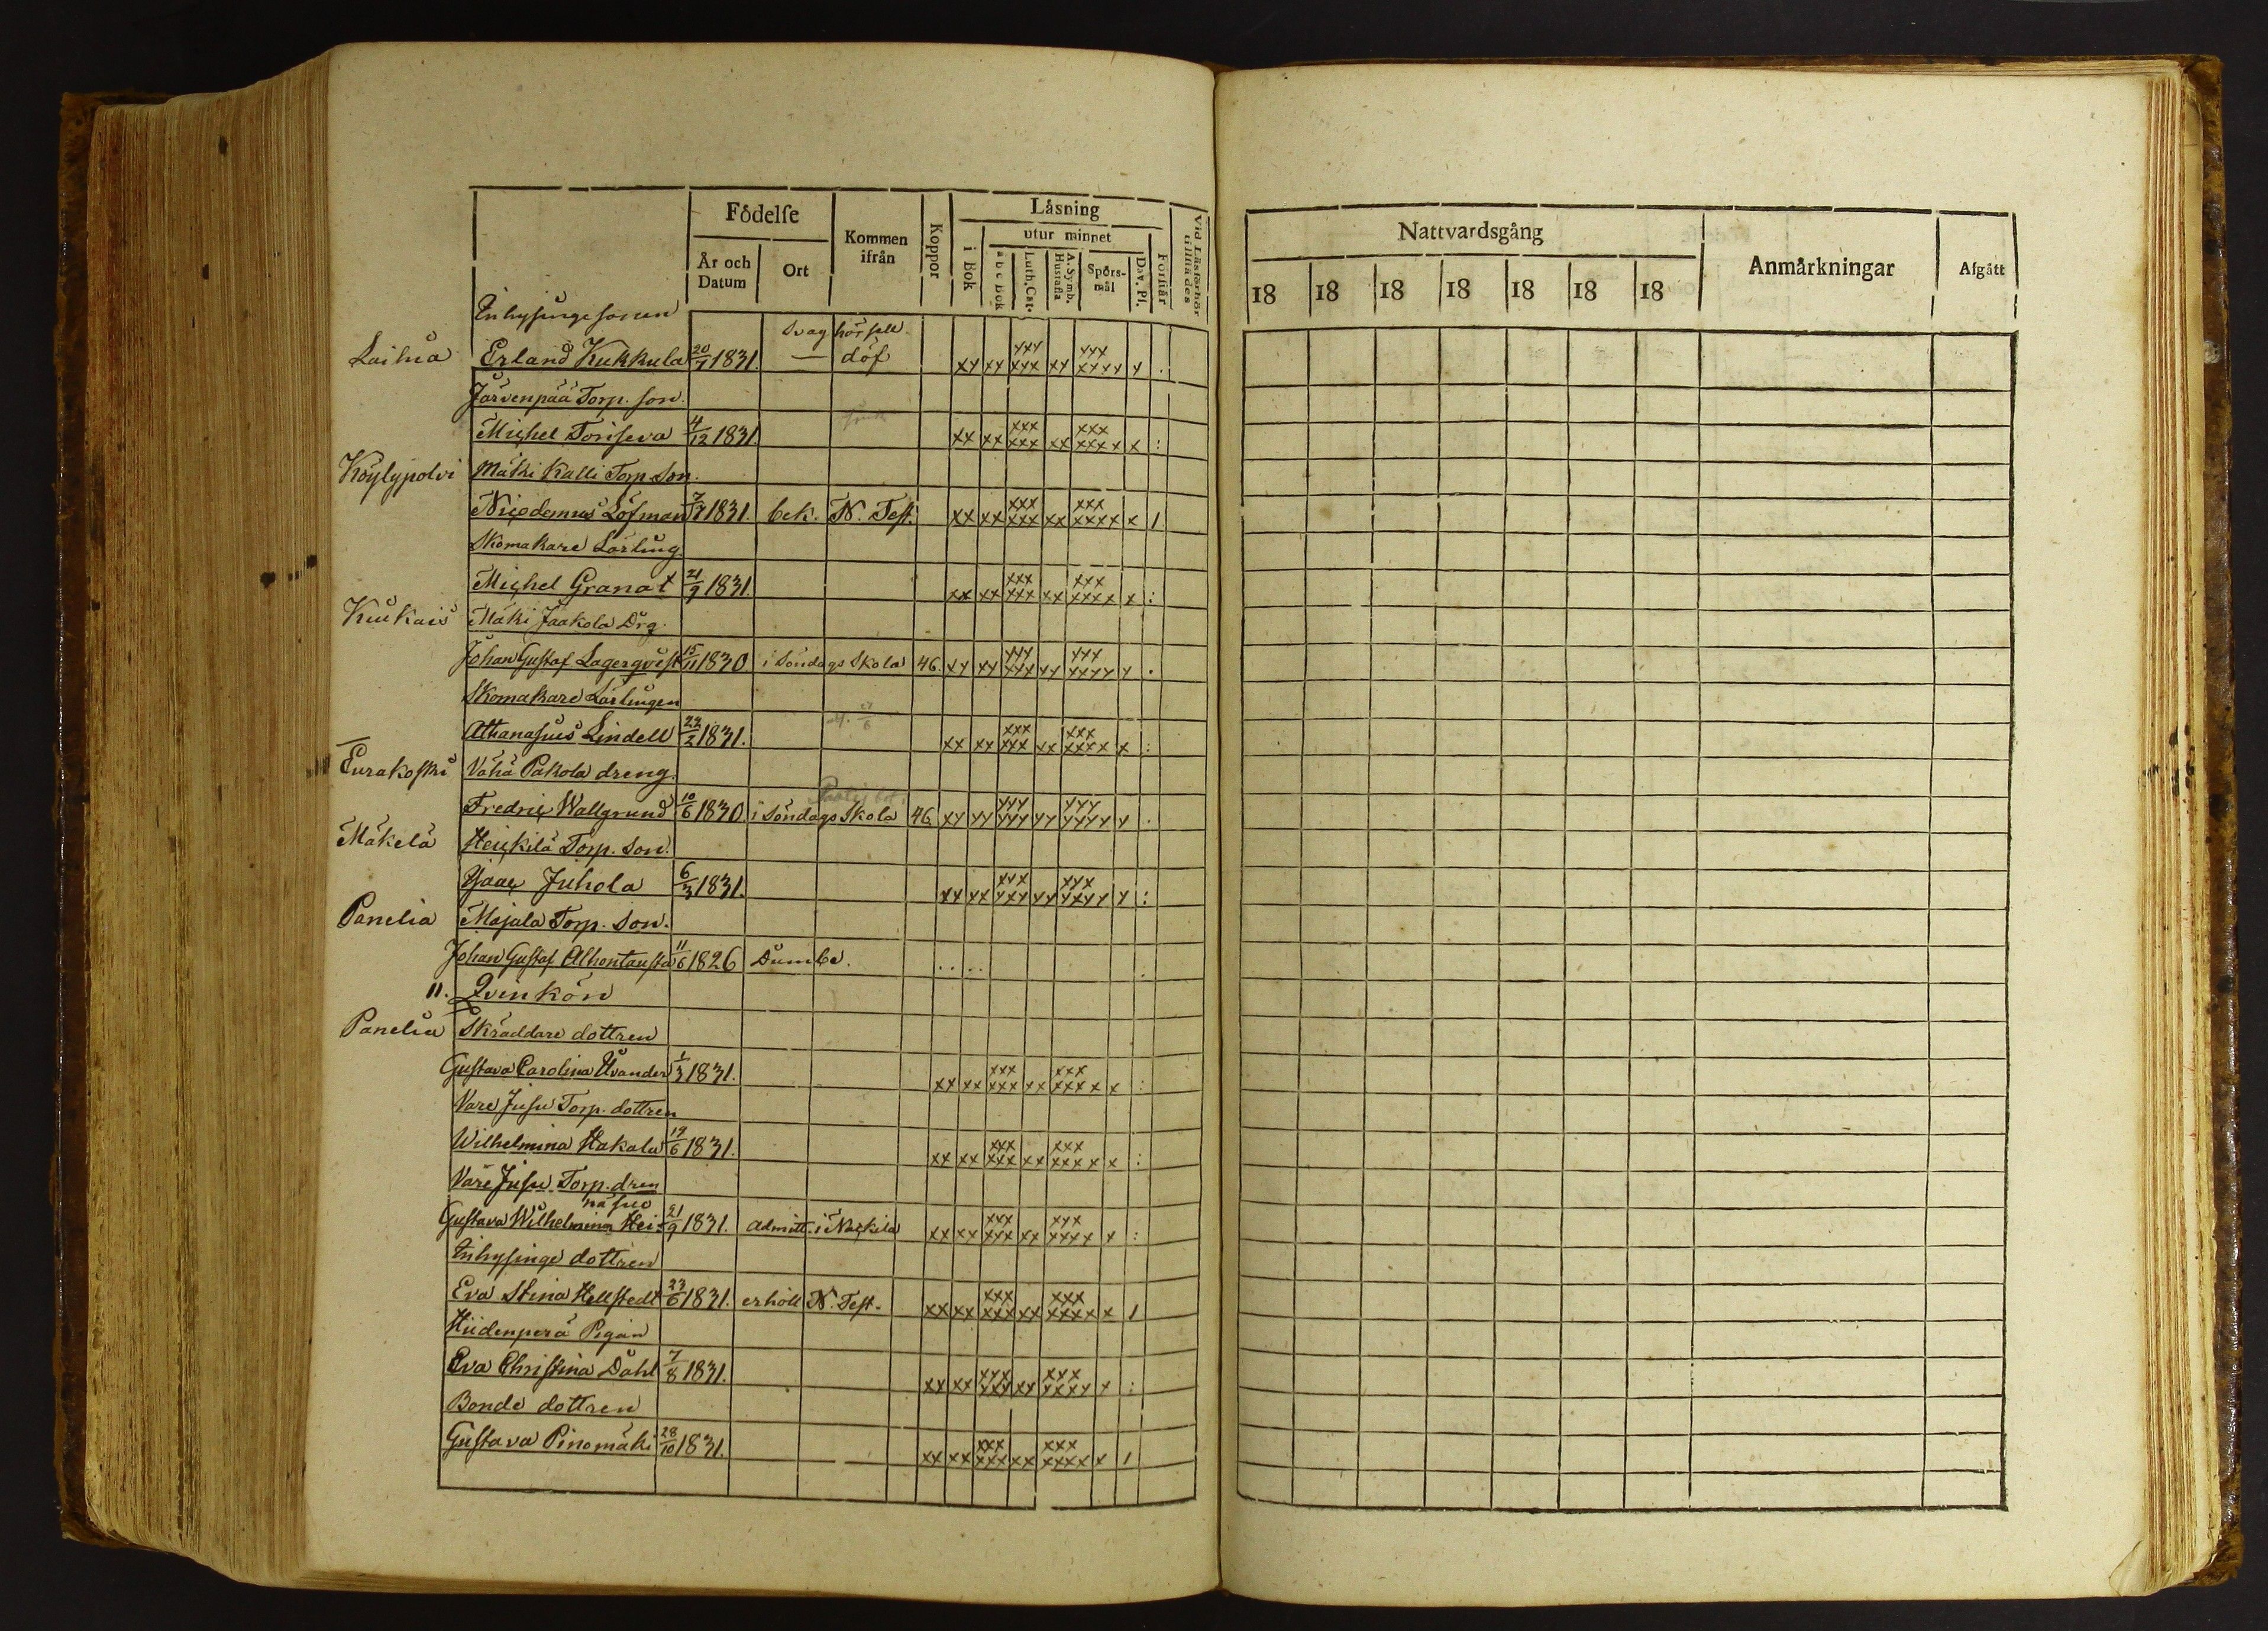 Födelse
År och Datum
Ort
Kommen ifrån
Koppor
Läsning
i Bok
utur minnet
a b c Bok
Luth. Cat.
A. Symb. Hustafla
Spörsmål
Dav. Pf.
Förstår
Vid Läsförhör tillstädes
Nattvardsgång
18 18 18 18 18 18 18
Anmärkningar
Afgått
Inhysinge sonen
Svag hörsell
Laihia Erland Kukkula 1831. — döf xx xx xxx xxx xx xxx xxxx x .
Järvenpää Torp. son.
Michel Toriseva 4/12 1831. xx xx xxx xxx xx xxx xxxx x :
Köylypolvi Mäki Kalli Torp. Son.
Nicodemus Löfman 1831. bek. N. Test. xx xx xxx xxx xx xxx xxxx x 1
Skomakare Lärling
Michel Granat 21/9 1831. xx xx xxx xxx xx xxx xxxx x :
Kiukais Mäki Jaakola Drg.
Johan Gustaf Lagerqvist 15/11 1830 i Söndags Skola 46 xx xx xxx xxx xx xxx xxxx x .
Skomakare Lärlingen
Athanasius Lindell 22/2 1831. xx xx xxx xxx xx xxx xxxx x :
Eurakoski Vähä Pakola dreng.
Fredric Wallgrund 10/6 1830. i Söndags Skola 46 xx xx xxx xxx xx xxx xxxx x .
Mäkelä Heickilä Torp. Son.
Isaac Juhola 6/3 1831. xx xx xxx xxx xx xxx xxxx x :
Panelia Majala Torp. Son.
Johan Gustaf Alhontausta 11/6 1826 Dumbe.
11. Qvinkön
Panelia Skräddare dottren
Gustava Carolina Uvander 1/3 1831. xx xx xxx xxx xx xxx xxxx x :
Vare Jusu Torp. dottren
Wilhelmina Hakala 19/6 1831. xx xx xxx xxx xx xxx xxxx x :
Vare Jusu Torp. dren
näsuo
Gustava Wilhelmina Hei 21/9 1831. admitt. i Nackila xx xx xxx xxx xx xxx xxxx x :
Inhysinge dottren
Eva Stina Hellstedt 23/6 1831. erhöll N. Test. xx xx xxx xxx xx xxx xxxx x 1
Hiidenperä Pigan
Eva Christina Dahl 7/8 1831. xx xx xxx xxx xx xxx xxxx x :
Bonde dottren
Gustava Pinomäki 28/10 1831. xx xx xxx xxx xx xxx xxxx x 1